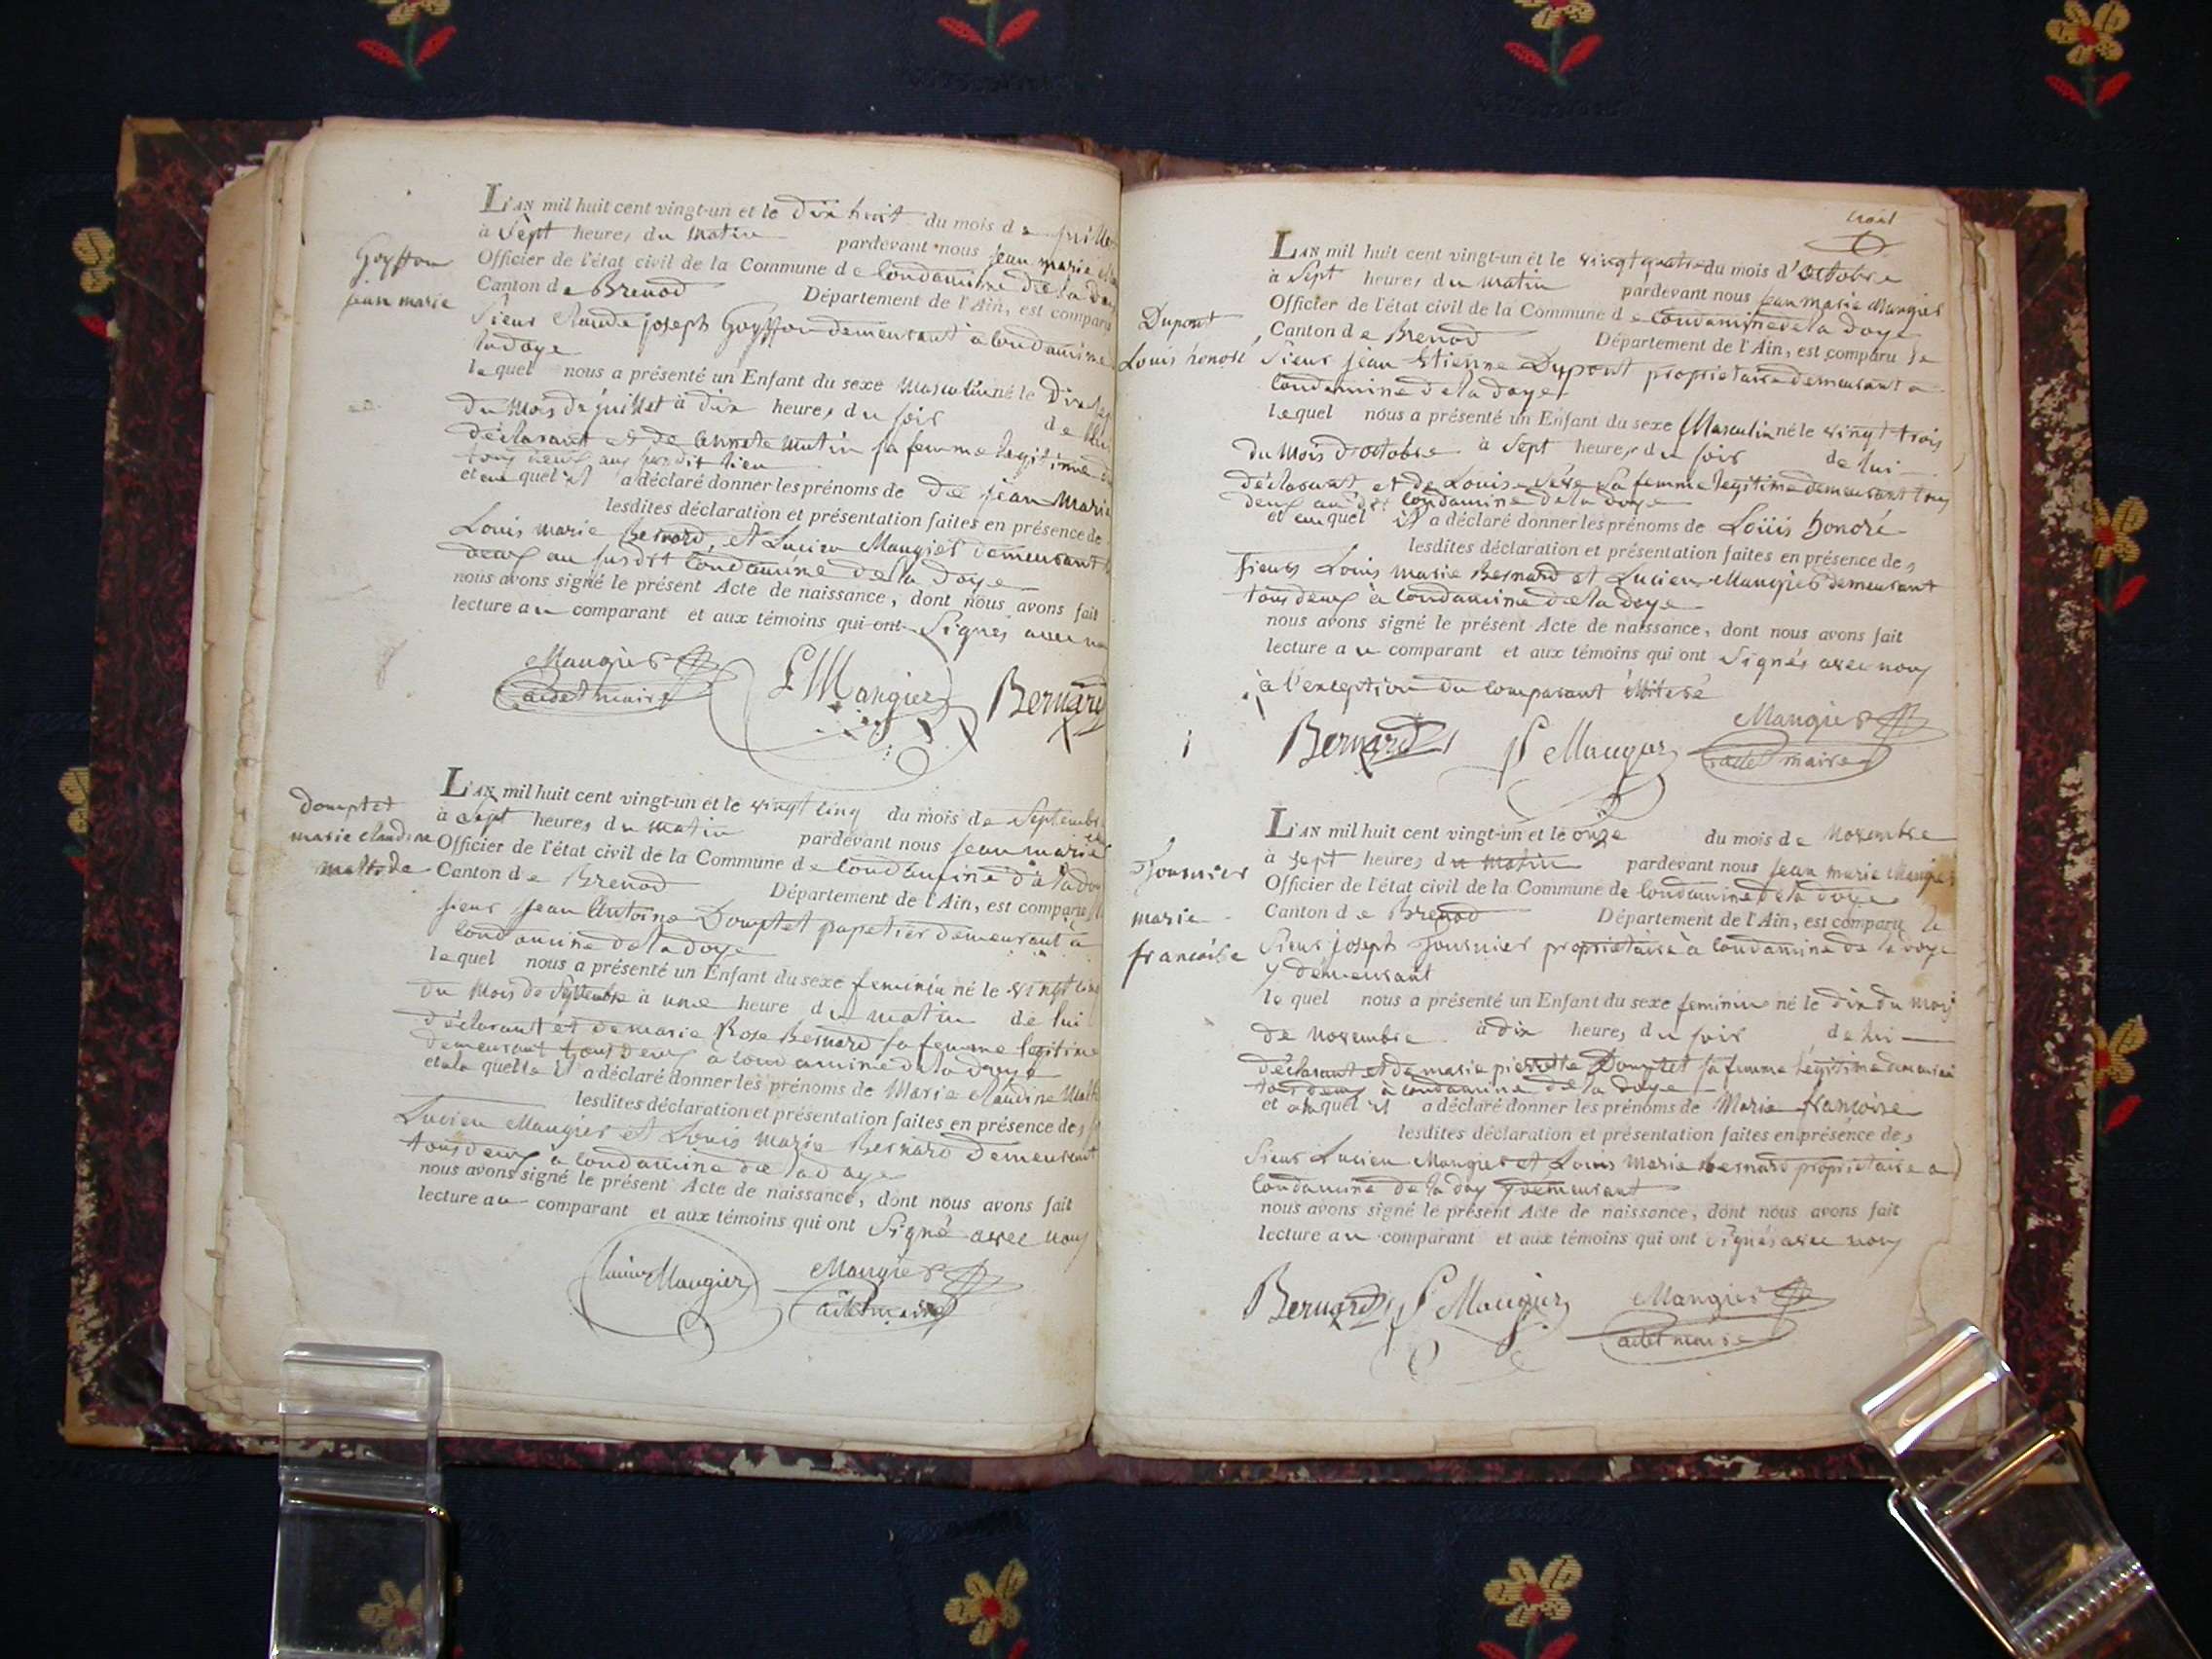 Goyffon
jean marie
L'AN mil huit cent vingt-un et le dix huit du mois de juillet
à Sept heures du matin pardevant nous jean marie
Officier de l'état civil de la Commune de Condamine de la Doye
Canton de Brenod Département de l'Ain, est comparu
Sieur Claude joseph Goyffon demeurant à Condamine
ladoye
lequel nous a présenté un Enfant du sexe masculin né le Dix sept
du mois de juillet à dix heures du soir de lui
déclarant et de Annete mutin sa femme legitime
tous deux au susdit lieu
et au quel il a déclaré donner les prénoms de de jean Marie
lesdites déclaration et présentation faites en présence de
Louis marie Bernard, et Lucien Maugier demeurant
deux au susdit Condamine de la doye
nous avons signé le présent Acte de naissance, dont nous avons fait
lecture au comparant et aux témoins qui ont Signés avec nous
Maugier
adet maire
L Maugier
Bernard
Domptet
marie claudine
L'AN mil huit cent vingt-un et le vingt cinq du mois de Septembre
à Sept heures du matin pardevant nous jean marie
Officier de l'état civil de la Commune de Condamine de la doye
Canton de Brenod Département de l'Ain, est comparu
sieur jean Antoine Domptet papetier demeurant à
Condamine de la doye
lequel nous a présenté un Enfant du sexe feminin né le vingt cinq
du mois de Septembre à une heure du matin de lui
déclarant et de marie Rose Bernard sa femme legitime
demeurant tous deux a Condamine de la doye
et a la quelle il a déclaré donner les prénoms de Marie claudine
lesdites déclaration et présentation faites en présence de,
Lucien Maugier et Louis marie Bernard demeurant
tous deux à Condamine de la doye
nous avons signé le présent Acte de naissance, dont nous avons fait
lecture au comparant et aux témoins qui ont Signé avec nous
Maugier
Maugier
adet maire
Dupont
Louis honoré
L'AN mil huit cent vingt-un et le vingt quatre du mois d'Octobre
à Sept heures du matin pardevant nous jean marie Maugier
Officier de l'état civil de la Commune de Condamine de la Doye
Canton de Brenod Département de l'Ain, est comparu le
Sieur jean Etienne Dupont proprietaire demeurant a
Condamine de la doye
lequel nous a présenté un Enfant du sexe Masculin né le vingt trois
du Mois d'octobre à Sept heures du soir de lui
déclarant et de Louise sa femme legitime demeurant tous
deux au dit Condamine de la doye
et au quel il a déclaré donner les prénoms de Loüis honoré
lesdites déclaration et présentation faites en présence des
sieurs Louis marie Bernard et Lucien Maugier demeurant
tous deux à Condamine de la doye
nous avons signé le présent Acte de naissance, dont nous avons fait
lecture au comparant et aux témoins qui ont Signés avec nous
à l'exception du comparant illiteré
Bernard
Maugier
Maugier
adet maire
Fournier
marie
francoise
L'AN mil huit cent vingt-un et le onze du mois de Novembre
à sept heures du matin pardevant nous jean marie Maugier
Officier de l'état civil de la Commune de Condamine de la doye
Canton de Brenod Département de l'Ain, est comparu le
Sieur joseph Fournier proprietaire à Condamine de la doye
y demeurant
lequel nous a présenté un Enfant du sexe feminin né le dix du mois
de novembre à dix heures du soir de lui
déclarant et de marie pierrette Domptet sa femme légitime demeurant
tous deux à Condamine de la doye
et au quel il a déclaré donner les prénoms de Marie francoise
lesdites déclaration et présentation faites en présence des
Sieur Lucien Maugier et Louis Marie bernard proprietaire a
Condamine de la doy y demeurant
nous avons signé le présent Acte de naissance, dont nous avons fait
lecture au comparant et aux témoins qui ont Signés avec nous
Bernard
Maugier
Maugier
adet maire